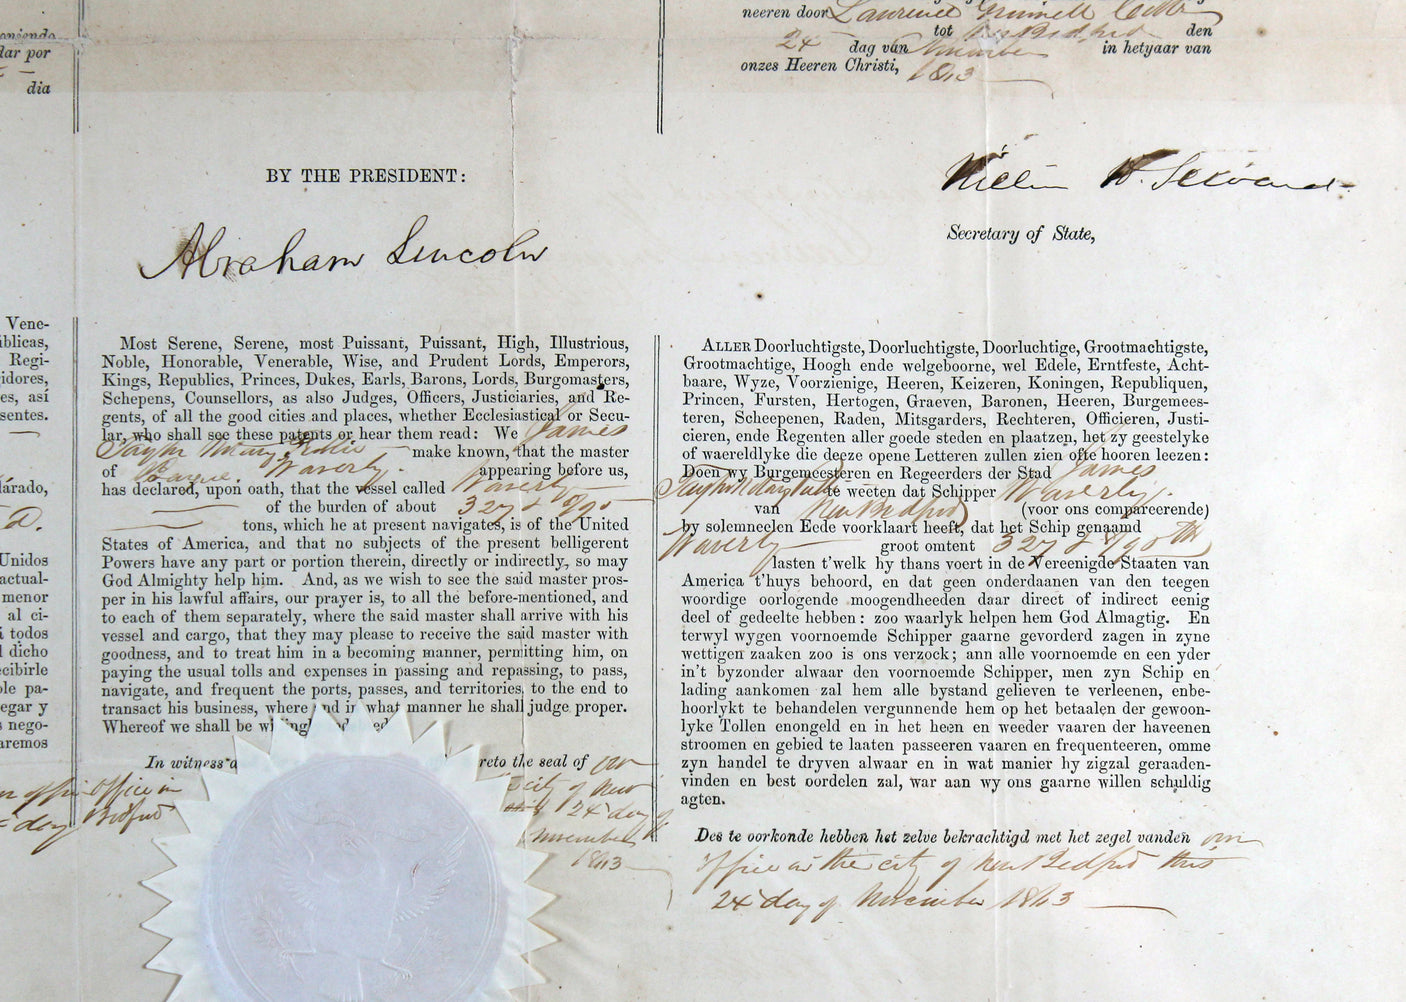 dar por
dia
neeren door Laurence Grinnell
tot New Bedford den
24 dag van November in hetyaar van
onzes Heeren Christi, 1863
BY THE PRESIDENT:
Abraham Lincoln
William H. Seward
Secretary of State,
Vene-
blicas,
Regi-
idores,
es, así
sentes.
árado,
Unidos
actual-
menor
al ci-
i todos
l dicho
ecibirle
ble pa-
egar y
s nego-
aremos
Most Serene, Serene, most Puissant, Puissant, High, Illustrious,
Noble, Honorable, Venerable, Wise, and Prudent Lords, Emperors,
Kings, Republics, Princes, Dukes, Earls, Barons, Lords, Burgomasters,
Schepens, Counsellors, as also Judges, Officers, Justiciaries, and Re-
gents, of all the good cities and places, whether Ecclesiastical or Secu-
lar, who shall see these patents or hear them read: We James
Taylor Notary Public make known, that the master
of Barque Waverly. appearing before us,
has declared, upon oath, that the vessel called Waverly
of the burden of about 327 &
tons, which he at present navigates, is of the United
States of America, and that no subjects of the present belligerent
Powers have any part or portion therein, directly or indirectly, so may
God Almighty help him. And, as we wish to see the said master pros-
per in his lawful affairs, our prayer is, to all the before-mentioned, and
to each of them separately, where the said master shall arrive with his
vessel and cargo, that they may please to receive the said master with
goodness, and to treat him in a becoming manner, permitting him, on
paying the usual tolls and expenses in passing and repassing, to pass,
navigate, and frequent the ports, passes, and territories, to the end to
transact his business, where and in what manner he shall judge proper.
Whereof we shall be
In witness reto the seal of our
office in city of New
Bedford 24 day of
day November
1863
ALLER Doorluchtigste, Doorluchtigste, Doorluchtige, Grootmachtigste,
Grootmachtige, Hoogh ende welgeboorne, wel Edele, Erntfeste, Acht-
baare, Wyze, Voorzienige, Heeren, Keizeren, Koningen, Republiquen,
Princen, Fursten, Hertogen, Graeven, Baronen, Heeren, Burgemees-
teren, Scheepenen, Raden, Mitsgarders, Rechteren, Officieren, Justi-
cieren, ende Regenten aller goede steden en plaatzen, het zy geestelyke
of waereldlyke die deeze opene Letteren zullen zien ofte hooren leezen:
Doen wy Burgemeesteren en Regeerders der Stad James
Taylor Notary Public te weeten dat Schipper Waverly.
van New Bedford (voor ons compareerende)
by solemneelen Eede voorklaart heeft, dat het Schip genaamd
Waverly groot omtent 327 &
lasten t'welk hy thans voert in de Vereenigde Staaten van
America t'huys behoord, en dat geen onderdaanen van den teegen
woordige oorlogende moogendheeden daar direct of indirect eenig
deel of gedeelte hebben: zoo waarlyk helpen hem God Almagtig. En
terwyl wygen voornoemde Schipper gaarne gevorderd zagen in zyne
wettigen zaaken zoo is ons verzock; ann alle voornoemde en een yder
in't byzonder alwaar den voornoemde Schipper, men zyn Schip en
lading aankomen zal hem alle bystand gelieven te verleenen, enbe-
hoorlykt te behandelen vergunnende hem op het betaalen der gewoon-
lyke Tollen enongeld en in het heen en weeder vaaren der haveenen
stroomen en gebied te laaten passeeren vaaren en frequenteeren, omme
zyn handel te dryven alwaar en in wat manier hy zigzal geraaden-
vinden en best oordelen zal, war aan wy ons gaarne willen schuldig
agten.
Des te oorkonde hebben het zelve bekrachtigd met het zegel vanden our
office in the city of New Bedford this
24 day of November 1863